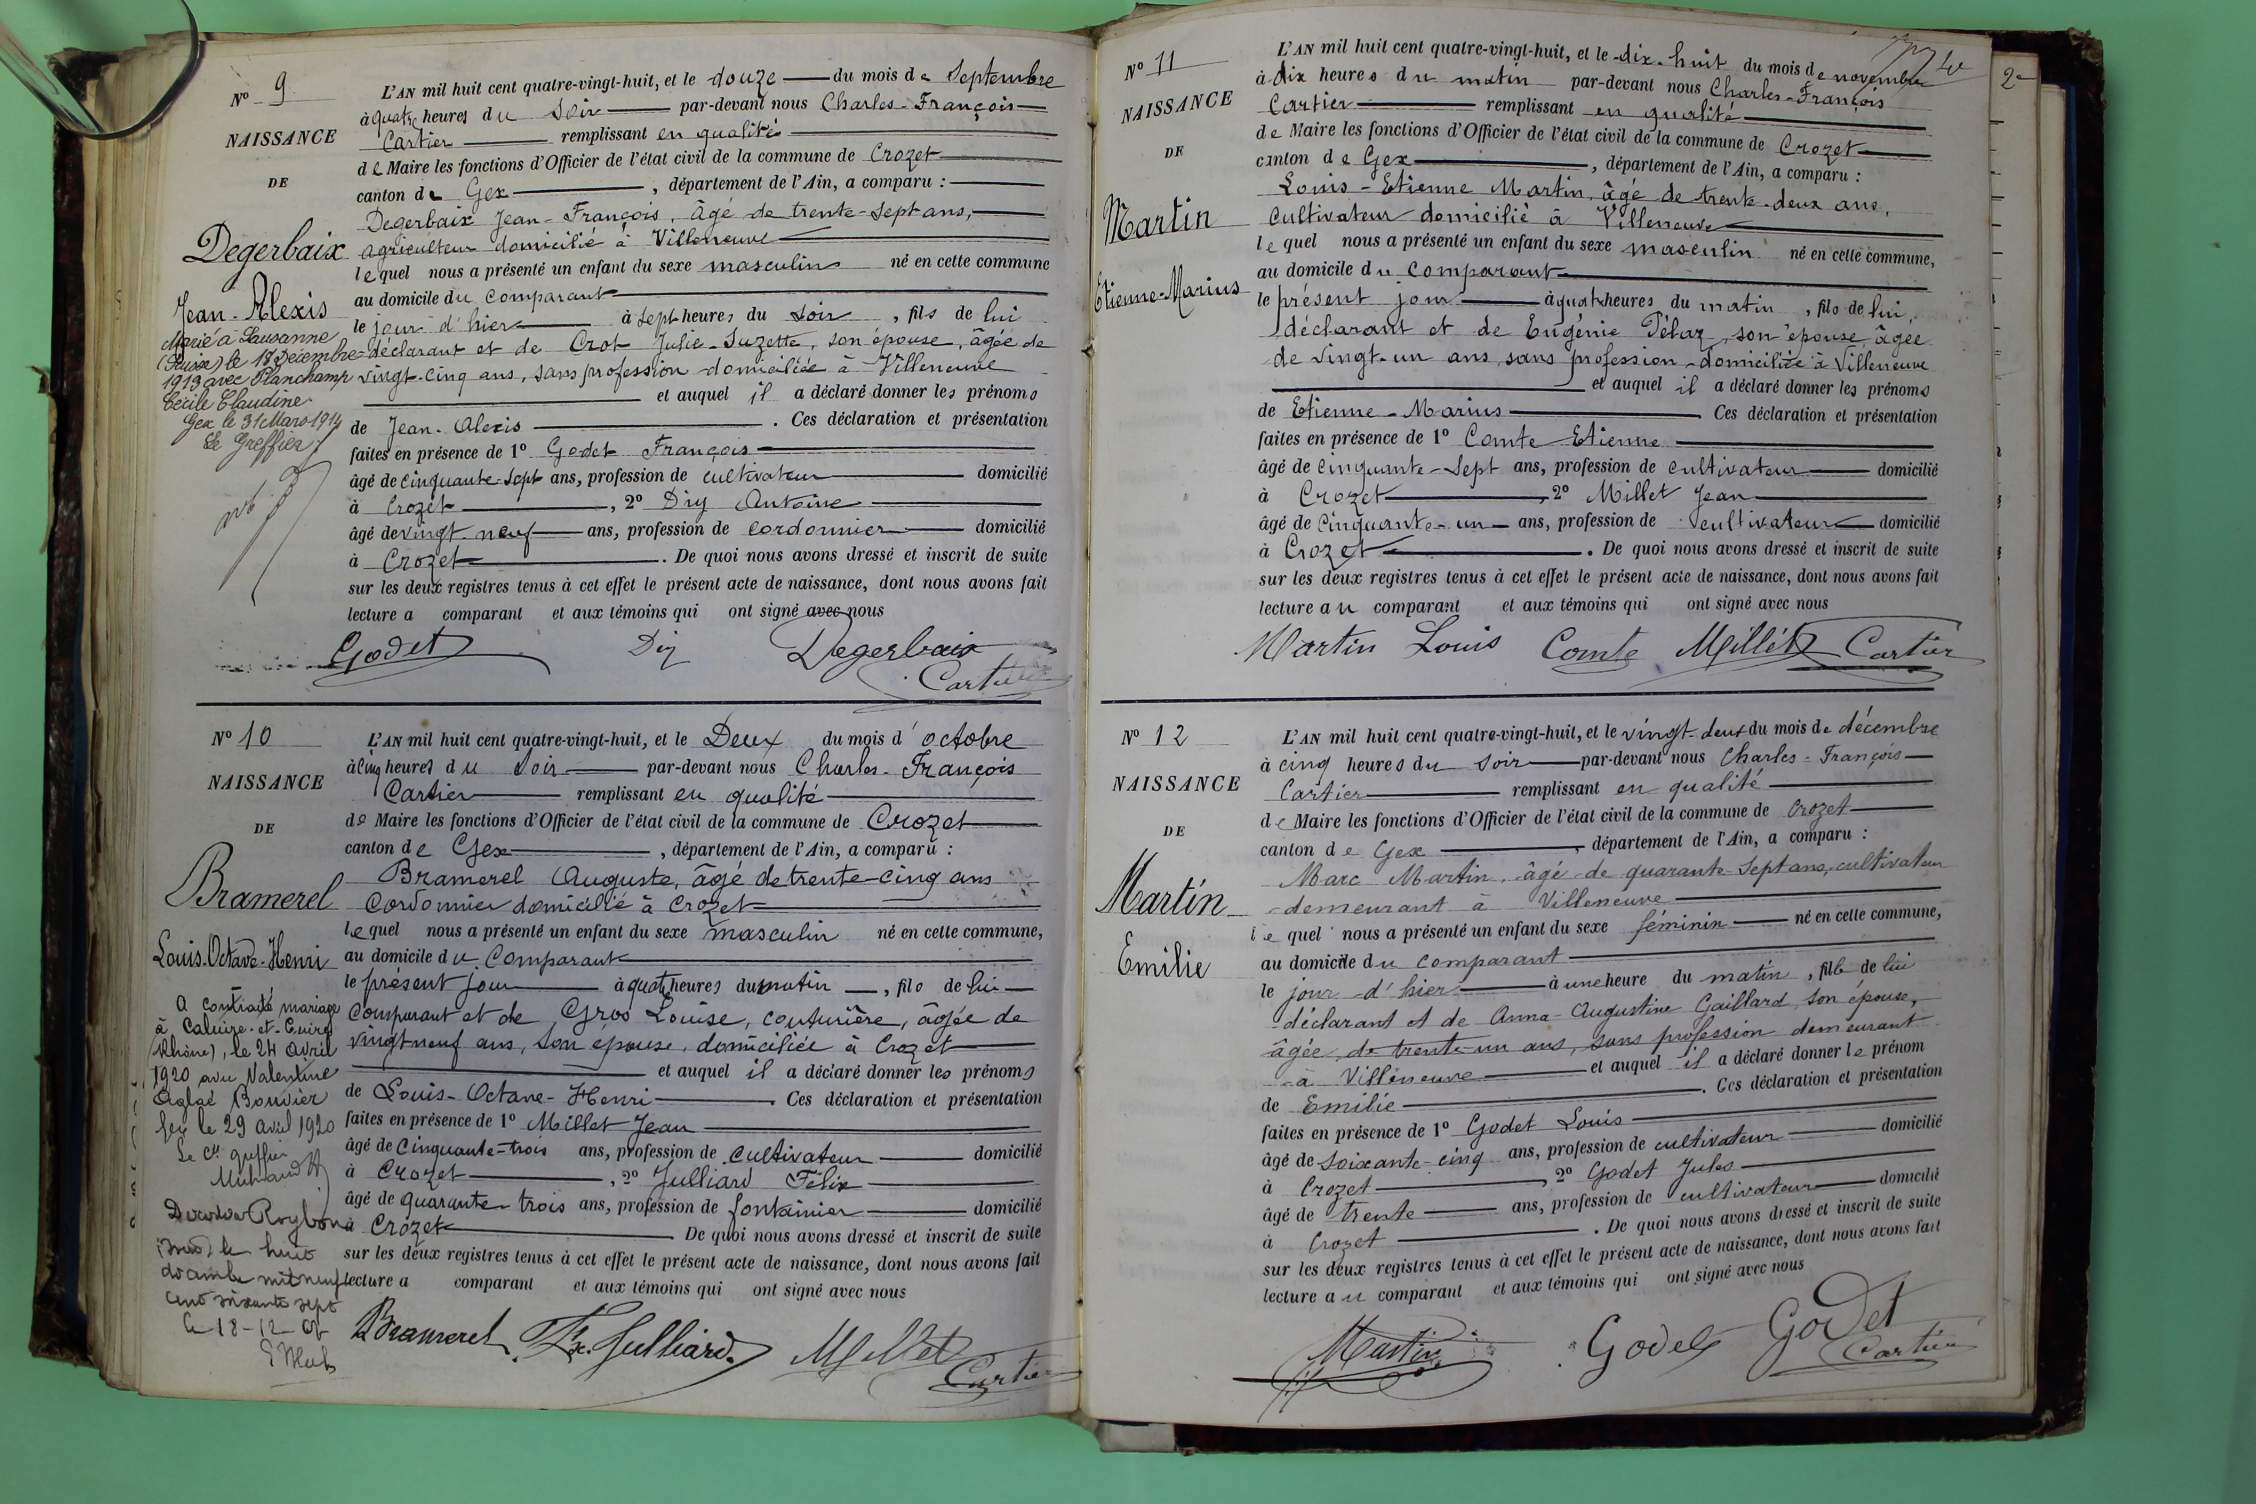 N° 9
NAISSANCE
DE
Degerbaix
Jean-Alexis
Marié à Lausanne
(Suisse) le 18 Décembre
1913 avec Planchamp
Cécile Claudine
Gex le 31 Mars 1914
Le Greffier
L'AN mil huit cent quatre-vingt-huit, et le douze du mois de Septembre
à quatre heures du soir par-devant nous Charles-François
Cartier remplissant en qualité
de Maire les fonctions d'Officier de l'état civil de la commune de Crozet
canton de Gex, département de l'Ain, a comparu :
Degerbaix Jean-François, âgé de trente-sept ans,
agriculteur domicilié à Villeneuve
lequel nous a présenté un enfant du sexe masculin né en cette commune
au domicile du comparant
le jour d'hier à sept heures du soir, fils de lui
déclarant et de Crot Julie-Suzette, son épouse, âgée de
vingt-cinq ans, sans profession domiciliée à Villeneuve
et auquel il a déclaré donner les prénoms
de Jean-Alexis. Ces déclaration et présentation
faites en présence de 1° Godet François
âgé de cinquante-sept ans, profession de cultivateur domicilié
à Crozet, 2° Diy Antoine
âgé de vingt-neuf ans, profession de cordonnier domicilié
à Crozet. De quoi nous avons dressé et inscrit de suite
sur les deux registres tenus à cet effet le présent acte de naissance, dont nous avons fait
lecture a comparant et aux témoins qui ont signé avec nous
Godet Diy Degerbaix
Cartier
N° 10
NAISSANCE
DE
Bramerel
Louis-Octave-Henri
A contracté mariage
à Caluire-et-Cuire
(Rhône), le 24 avril
1920 avec Valentine
Aglaé Bouvier
Gex le 29 avril 1920
Le Cis greffier
Roybon
le huit
mil neuf
cent soixante sept
Le 18-12-67
L'AN mil huit cent quatre-vingt-huit, et le Deux du mois d'octobre
à cinq heures du soir par-devant nous Charles-François
Cartier remplissant en qualité
de Maire les fonctions d'Officier de l'état civil de la commune de Crozet
canton de Gex, département de l'Ain, a comparu :
Bramerel Auguste, âgé de trente-cinq ans
cordonnier domicilié à Crozet
lequel nous a présenté un enfant du sexe masculin né en cette commune,
au domicile du Comparant
le présent jour à quatre heures du matin, fils de lui
comparant et de Gros Louise, couturière, âgée de
vingt neuf ans, son épouse, domiciliée à Crozet
et auquel il a déclaré donner les prénoms
de Louis-Octave-Henri. Ces déclaration et présentation
faites en présence de 1° Millet Jean
âgé de Cinquante-trois ans, profession de cultivateur domicilié
à Crozet, 2° Julliard Félix
âgé de quarante-trois ans, profession de fontainier domicilié
à Crozet De quoi nous avons dressé et inscrit de suite
sur les deux registres tenus à cet effet le présent acte de naissance, dont nous avons fait
lecture a comparant et aux témoins qui ont signé avec nous
Bramerel Fx. Julliard Millet Cartier
N° 11
NAISSANCE
DE
Martin
Etienne-Marius
L'AN mil huit cent quatre-vingt-huit, et le dix-huit du mois de novembre
à dix heures du matin par-devant nous Charles-François
Cartier remplissant en qualité
de Maire les fonctions d'Officier de l'état civil de la commune de Crozet
canton de Gex, département de l'Ain, a comparu :
Louis-Etienne Martin, âgé de trente-deux ans,
cultivateur domicilié à Villeneuve
lequel nous a présenté un enfant du sexe masculin né en cette commune,
au domicile du comparant
le présent jour à quatre heures du matin, fils de lui,
déclarant et de Eugénie Pélaz, son épouse, âgée
de vingt-un ans, sans profession, domiciliée à Villeneuve
et auquel il a déclaré donner les prénoms
de Etienne-Marius Ces déclaration et présentation
faites en présence de 1° Comte Etienne
âgé de cinquante-sept ans, profession de cultivateur domicilié
à Crozet, 2° Millet Jean
âgé de Cinquante-un ans, profession de cultivateur domicilié
à Crozet. De quoi nous avons dressé et inscrit de suite
sur les deux registres tenus à cet effet le présent acte de naissance, dont nous avons fait
lecture au comparant et aux témoins qui ont signé avec nous
Martin Louis Comte Millet Cartier
N° 12
NAISSANCE
DE
Martin
Emilie
L'AN mil huit cent quatre-vingt-huit, et le vingt-deux du mois de décembre
à cinq heures du soir par-devant nous Charles-François
Cartier remplissant en qualité
de Maire les fonctions d'Officier de l'état civil de la commune de Crozet
canton de Gex, département de l'Ain, a comparu :
Marc Martin, âgé de quarante-sept ans, cultivateur
demeurant à Villeneuve
lequel nous a présenté un enfant du sexe féminin né en cette commune,
au domicile du comparant
le jour d'hier à une heure du matin, fille de lui
déclarant et de Anna-Augustine Gaillard, son épouse,
âgée de trente-un ans, sans profession demeurant
à Villeneuve et auquel il a déclaré donner le prénom
de Emilie. Ces déclaration et présentation
faites en présence de 1° Godet Louis
âgé de soixante-cinq ans, profession de cultivateur domicilié
à Crozet, 2° Godet Jules
âgé de trente ans, profession de cultivateur domicilié
à Crozet. De quoi nous avons dressé et inscrit de suite
sur les deux registres tenus à cet effet le présent acte de naissance, dont nous avons fait
lecture au comparant et aux témoins qui ont signé avec nous
Martin Godet Godet
Cartier